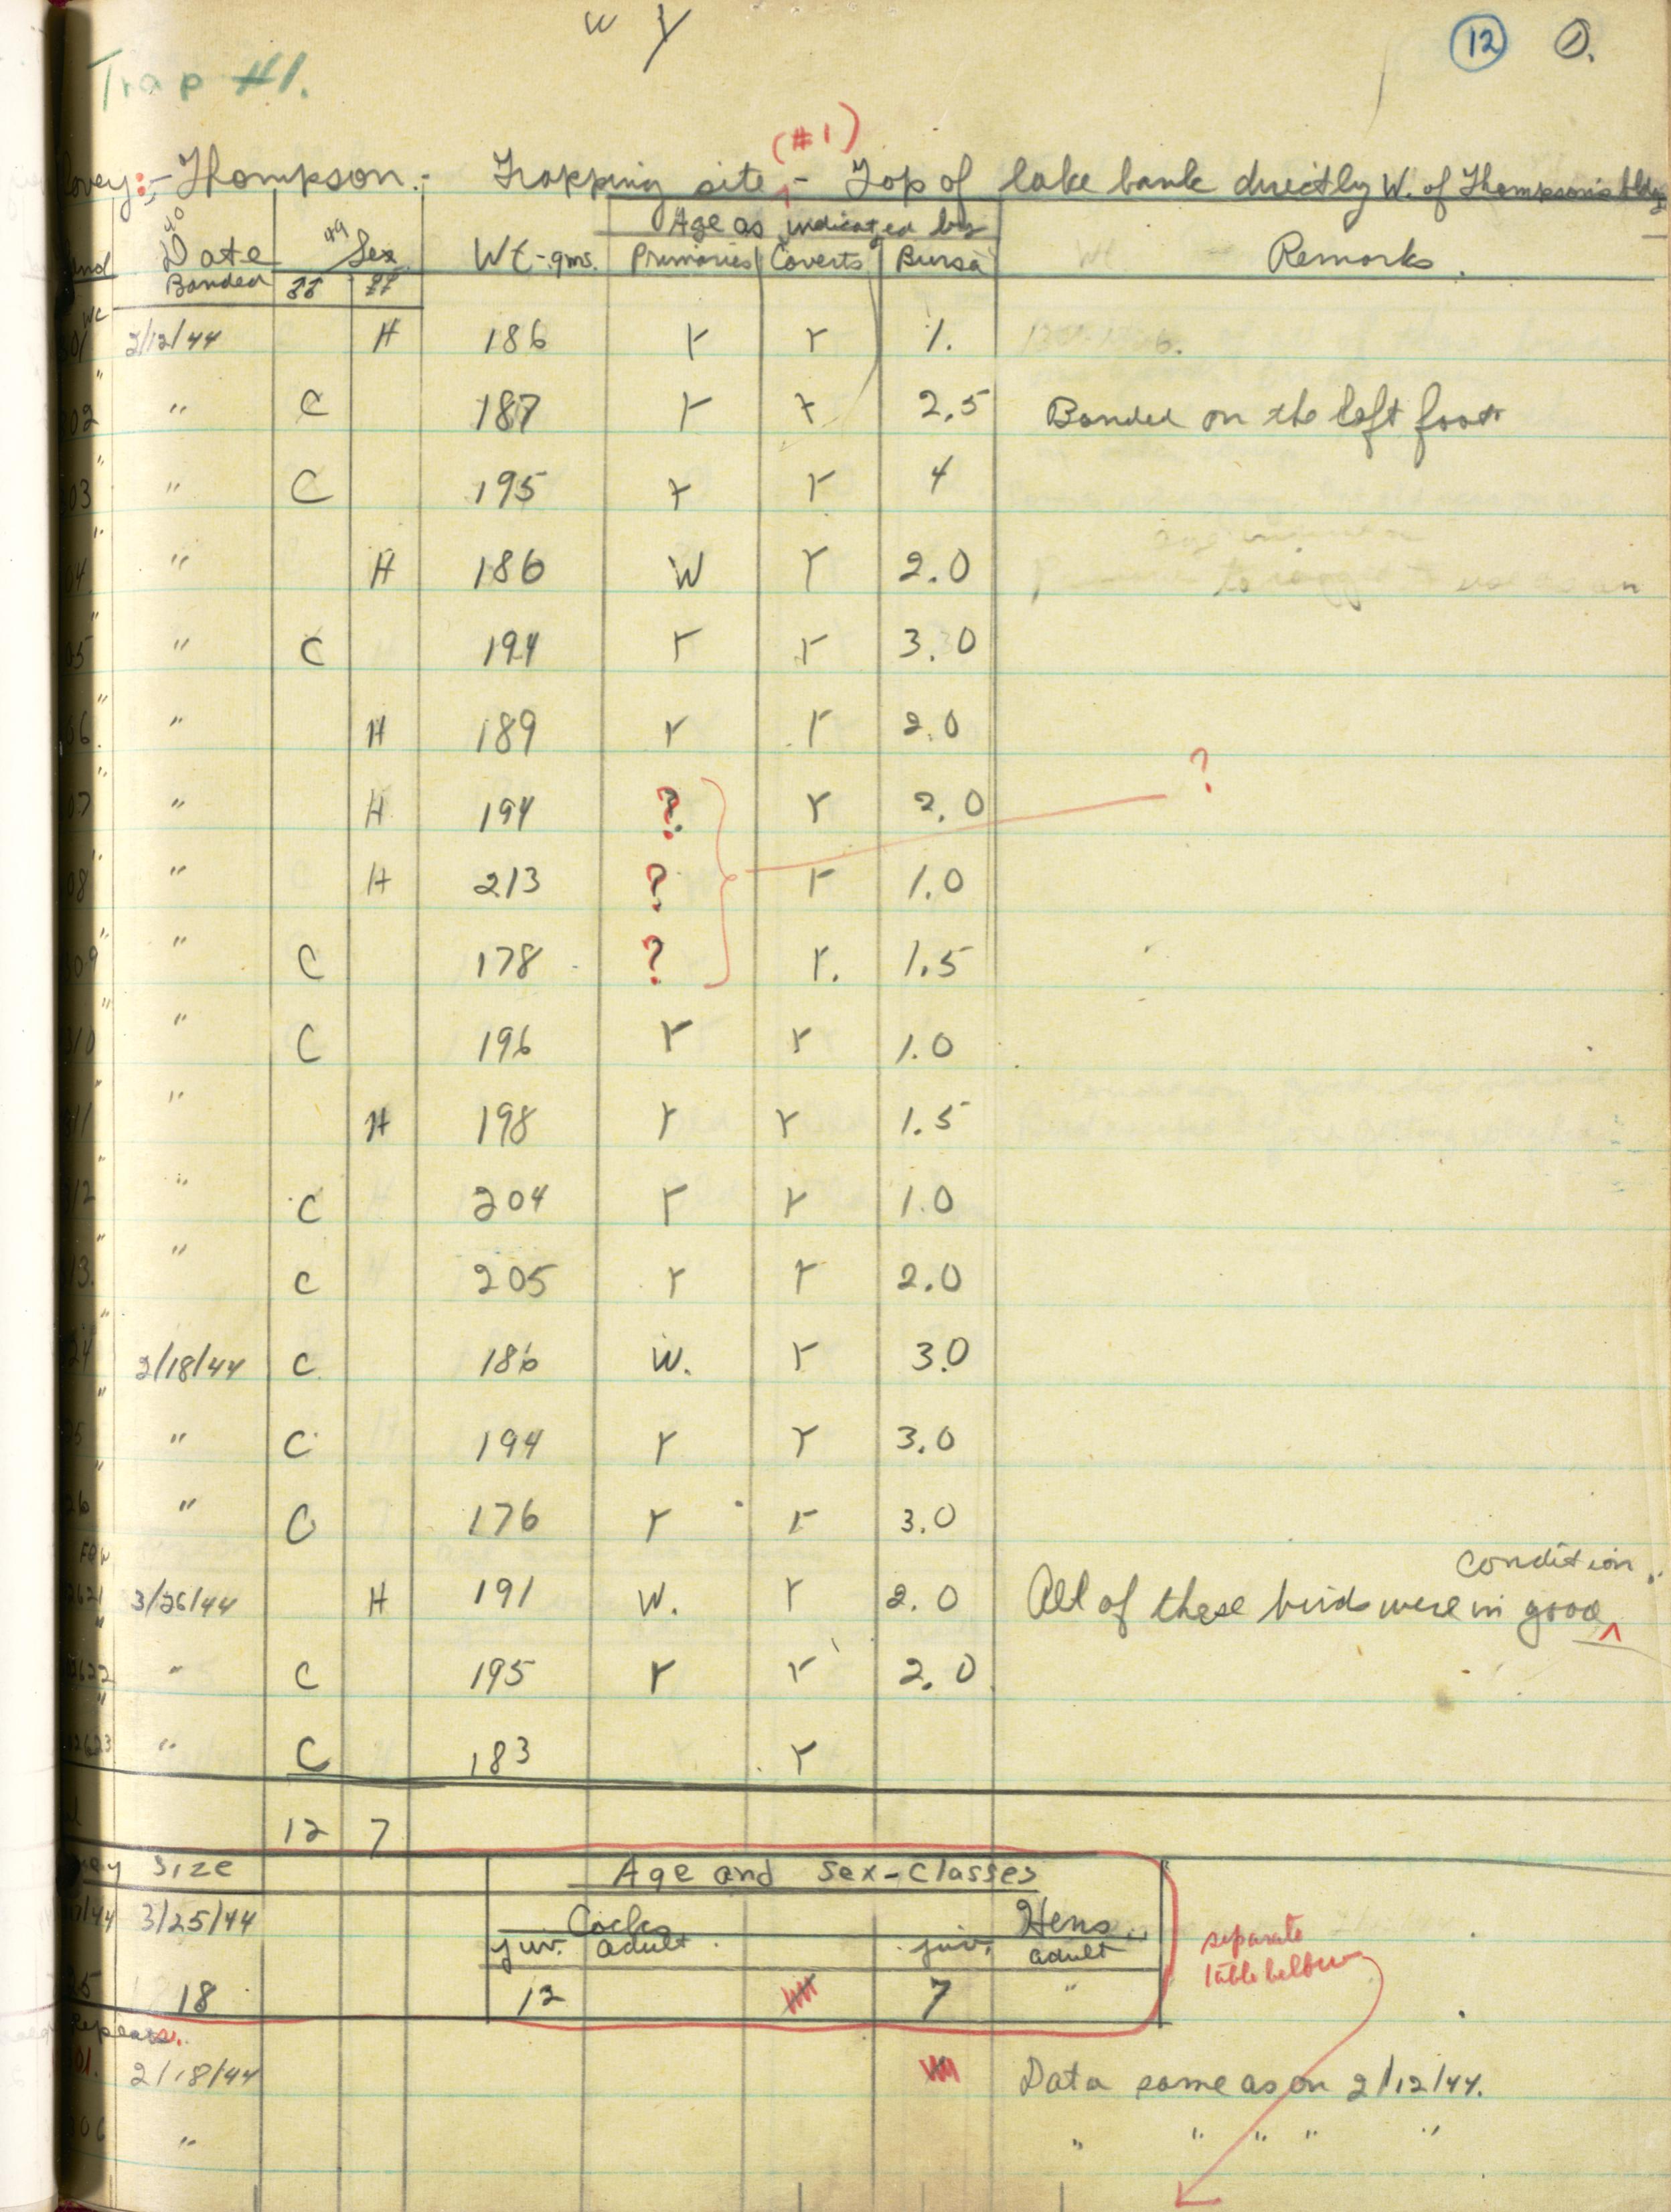 W Y
12 1.
Trap #1.
(#1)
Covey:- Thompson.- Trapping site - Top of lake bank directly W. of Thompson's bldg
Age as indicated by
Date Banded Sex Wt-gms. Primaries Coverts Bursa Remarks.
♂♂ ♀♀
2/12/44 H 186 Y Y 1.
02 " C 187 Y Y 2.5 Banded on the left foot
03 " C 195 Y Y 4
04 " H 186 W Y 2.0
05 " C 194 Y Y 3.0
06. " H 189 Y Y 2.0
?
07 " H 194 ? Y 2.0
08 " H 213 ? Y 1.0
09 " C 178 ? Y. 1.5
10 " C 196 Y Y 1.0
11 " H 198 Y Y 1.5
12 " C 204 Y Y 1.0
13. " C 205 Y Y 2.0
24 2/18/44 C 186 W. Y 3.0
25 " C 194 Y Y 3.0
26 " C 176 Y Y 3.0
condition.
2621 3/26/44 H 191 W. Y 2.0 All of these birds were in good ^
2622 " C 195 Y Y 2.0
2623 " C 183 Y
12 7
Size Age and Sex-Classes
/44 3/25/44 Cocks Hens
juv. adult juv. adult
25 18 12 7 "
separate
table below
Repeats.
01. 2/18/44 Data same as on 2/12/44.
06 " " " " " "